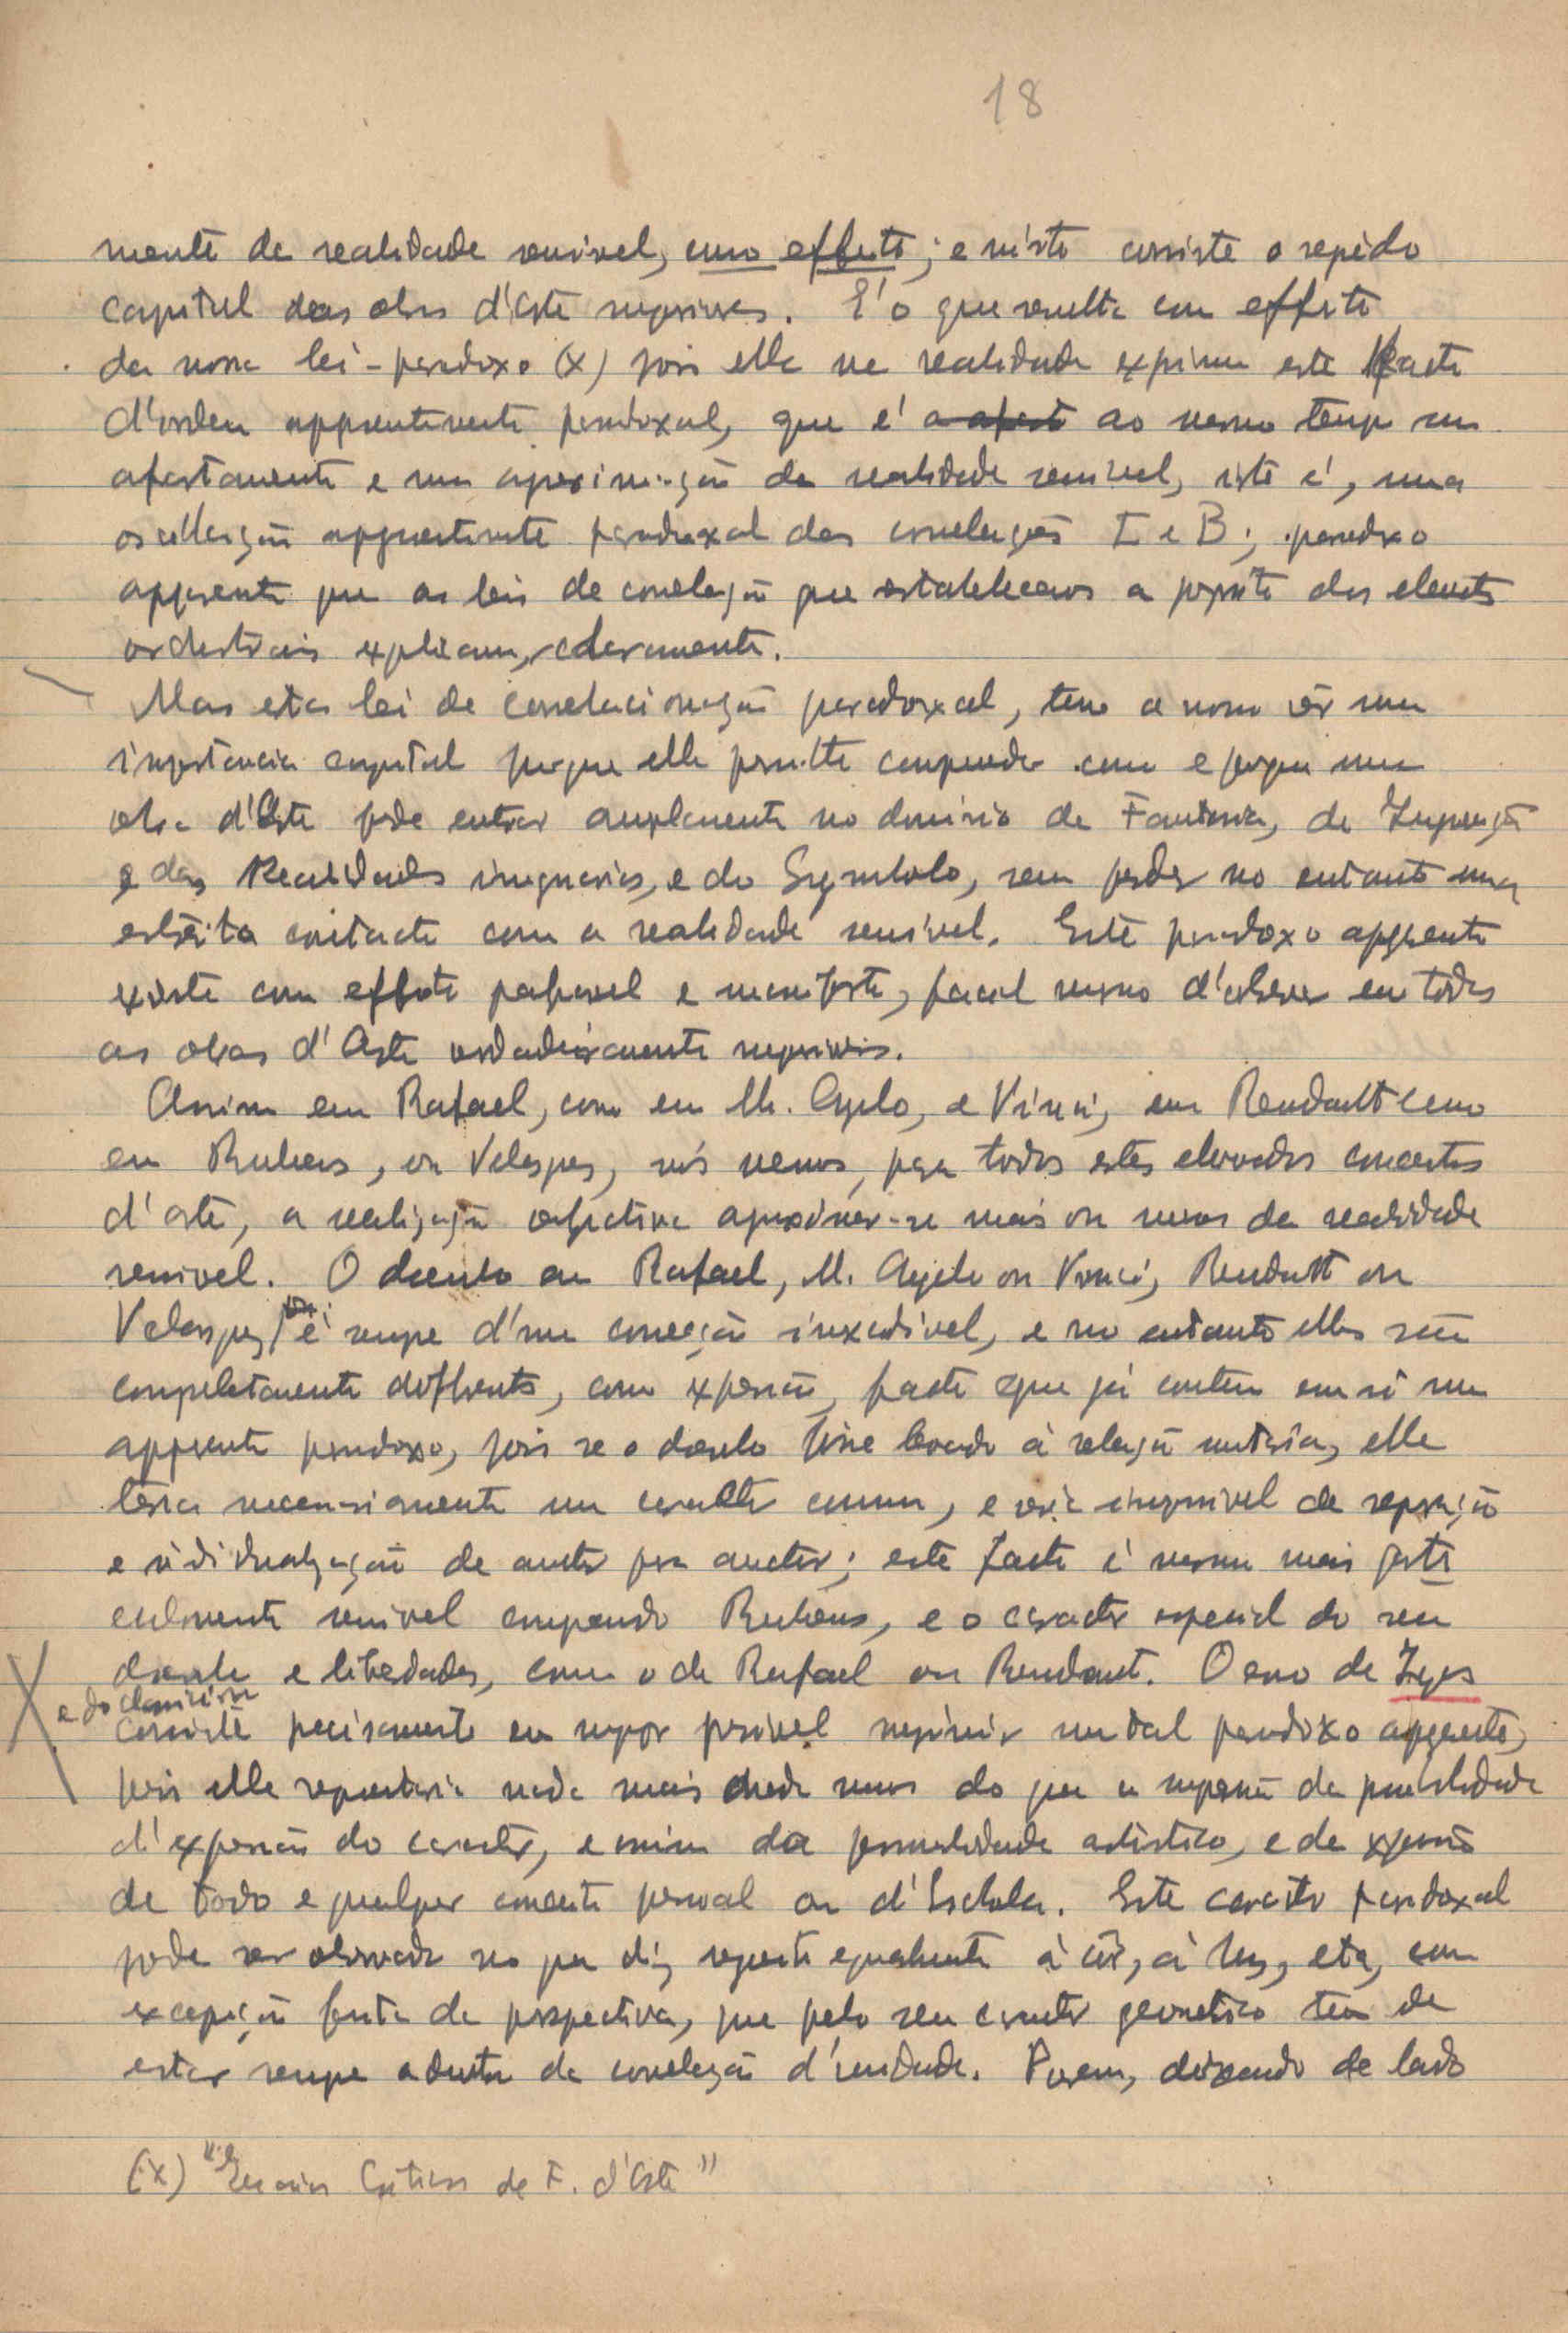 18
mente da realidade sensivel, como effeito; e n'isto consiste o segredo
capital das obras d'Arte superiores. E' o que resulta com effeito
da nossa lei-paradoxo (x) pois ella na realidade exprime este facto
d'ordem apparentemente paradoxal, que é a afast ao mesmo tempo um
afastamento e uma aproximação da realidade sensivel, isto é, uma
oscillação apparentemente paradoxal das correlações I e B; paradoxo
apparente que as leis de correlação que estabelecemos a proposito dos elementos
orchestraes explicam, claramente.
Mas esta lei de correlacionação paradoxal, tem a nosso vêr uma
importancia capital porque ella permitte comprehender como e porque uma
obra d'Arte pode entrar amplamente no dominio da Fantasia, da
e das Realidades imaginarias, e do Symbolo, sem perder no entanto um
estreito contacto com a realidade sensivel. Este paradoxo apparente
existe com effeito palpavel e manifesto, facil mesmo d'observar em todas
as obras d'Arte verdadeiramente superiores.
Assim em Rafael, como em M. Angelo, e Vinci, em Rembrandt como
em Rubens, ou Velasquez, nós vemos, para todos estes elevados conceitos
d'arte, a realização respectiva aproximar-se mais ou menos da realidade
sensivel. O desenho em Rafael, M. Angelo ou Vinci, Rembrandt ou
Velasquez é sempre d'uma correcção inexcedivel, e no entanto elles são
completamente differentes, como expressão, facto que já contem em si um
apparente paradoxo, pois se o desenho fosse levado á relação unitaria, elle
teria necessariamente um caracter commum, e seria impossivel de separação
e individualização de auctor para auctor; este facto é mesmo mais parti
cularmente sensivel comparando Rubens, e o caracter especial do seu
desenho e liberdades, com o de Rafael ou Rembrandt. O erro de Ingres
e do classicismo
consiste precisamente em suppor possivel supprimir um tal paradoxo apparente,
pois elle representaria nada mais nada menos do que a supressão da possibilidade
d'expressão do caracter, e assim da personalidade artistica, e da expressão
de todo e qualquer conceito pessoal ou d'Eschola. Este caracter paradoxal
pode ser observado no que diz respeito egualmente á côr, á luz, etc, com
excepção feita da perspectiva, que pelo seu caracter geometrico tem de
estar sempre adentro da correlação d'unidade. Porem, deixando de lado
(x) "Ensaios Criticos de F. d'Arte"